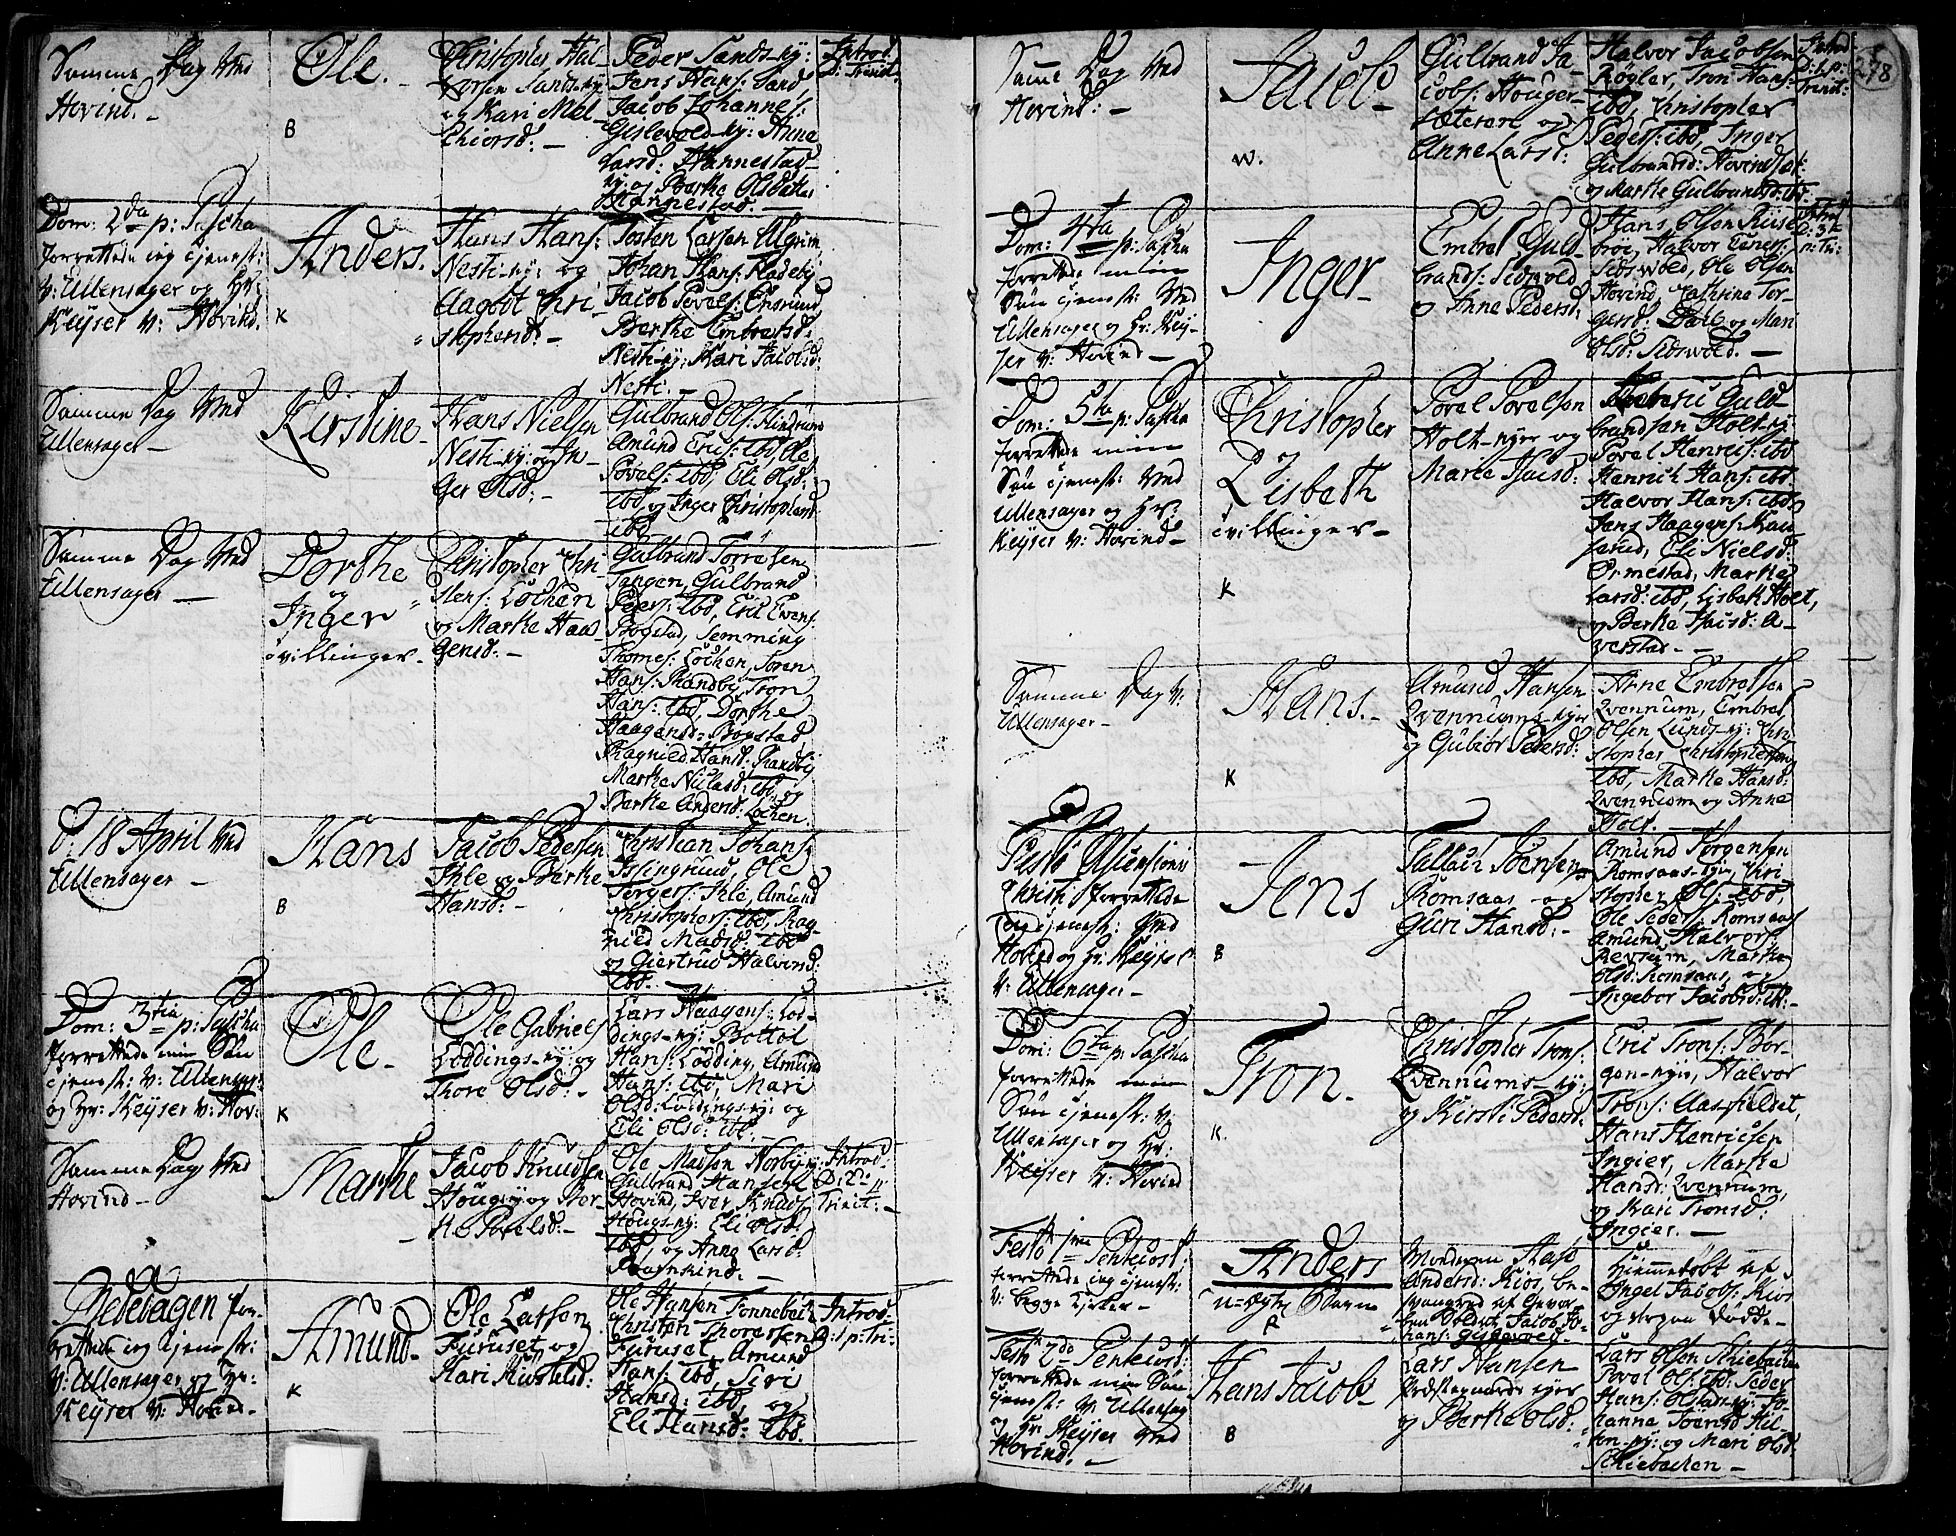 Samme Dag Ved
Hovind. -
Ole.
B
Christopher Hal-
vorsen Sands-ny:
og Kari Mel-
chiorsd: -
Peder Sands-ny:
Jens Hans: Sand,
Jacob Johannes:
Gislevold-ny: Anne
Larsd: Hannestad
ny: og Berthe Olsdatter
Hannestad. -
Introd.
D: Trinit.
Dom: 2da p: Pascha
forrettede ieg tienest:
v: Ullensager og Hr:
Keyser v: Hovind.
Anders.
K
Hans Hans:
Nesti-ny: og
Aagot Chri-
stophersd: -
Tosten Larsen Algrim
Johan Hans: Fladeby
Jacob Povels: Ensrud
Berthe Embretsd:
Nesti-ny: Kari Jacobsd:
Nesti. -
Samme Dag Ved
Ullensager -
Kirstine -
Hans Nielsen
Nesti-ny: og In-
ger Olsd: -
Gulbrand Ols:
Amund Erics: ibd, Ole
Povels: ibd, Eli Olsd:
ibd, og Inger Christophersd:
ibd.
Samme Dag Ved
Ullensager -
Dorthe
og
Inger
tvillinger -
Christopher Chri-
stens: Lochen
og Marthe Haa-
gensd: -
Gulbrand Torresen
Tangen, Gulbrand
Peders: ibd, Eric Evens:
Bogstad, Semming
Thomes: Lochen, Soren
Hans: Randby, Tron
Hans: ibd, Dorthe
Haagensd: Bogstad
Ragnild Hansd: Randby
Marthe Nielsd: ibd, og
Berthe Andersd: Lochen.
d: 18 April Ved
Ullensager -
Hans
B
Jacob Pedersen
Ihle og Berthe
Hansd: -
Christian Johans:
Islingrud, Ole
Torgers: Ihle, Amund
Christophers: ibd, Rag-
nild Madsd: ibd
og Giertrud Halvorsd:
ibd. -
Dom: 3tia p: Pascha
forrettede min Søn
tienest: v: Ullensag:
og Hr: Keyser v: Hov:
Ole -
K
Ole Gabriels
Loddings-ny: og
Thore Olsd: -
Lars Haagens: Lod-
dings-ny: Bottol
Hans: Lodding, Amund
Hans: ibd, Mari
Olsd: Loddings-ny: og
Eli Olsd: ibd. -
Samme Dag Ved
Hovind -
Marthe
Jacob Knudsen
Houg-ny: og Dor-
the Povelsd: -
Ole Madsen Norby-ny:
Gulbrand Hansen
Hovind, Iver Knuds:
Hougs-ny: Eli Olsd:
ibd, og Anne Larsd:
-
Introd.
D: 2: p:
Trinit: -
Bededagen for-
rettede ieg tienest:
v: Ullensager og Hr:
Keyser v: Hovind -
Amund -
K
Ole Larsen
Furuset og
Kari Kiostelsd:
Ole Hansen Tonneboit
Christen Thoresen
Furuset, Amund
Hans: ibd, Siri
Hansd: ibd, og
Eli Hansd: ibd.
Introd:
D: 5 p: Tri: -
278
Samme Dag Ved
Hovind: -
Jacob -
W.
Gulbrand Ja-
cobs: Houger-
sæteren og
Anne Larsd:
Halvor Jacobsen
Røgler, Tron Hans:
ibd, Christopher
Peders: ibd, Inger
Gulbrandsd: Hovind
og Marthe Gulbrandsd: ibd.
Introd:
D: 1: p:
Trinit:
Dom: 4ta p: Pascha
forrettede min
Søn tienest: Ved
Ullensager og Hr: Key-
ser v: Hovind -
Inger -
Embret Guld-
brands: Sidsvold
og Anne Pedersd:
Hans Olsen Ruse-
broe, Halvor Eners:
Sidsvold, Ole Olsen
Hovind, Cathrine Tor-
gersd: Dahl og Mari
Olsd: Sidsvold. -
Introd:
D: 3 p:
Tri:
Dom: 5ta p: Pascha
forrettede min
Søn tienest: Ved
Ullensager og Hr:
Keyser v: Hovind -
Christopher
&
Lisbeth
tvillinger -
K
Povel Povelsen
Holt-nyer og
Marte Isacsd:
Guld-
brandsen Holt-ny:
Povel Henrics: ibd
Henrich Hans: ibd.
Halvor Hans: ibd,
Jens Haagens: Kau-
serud, Eli Nielsd:
Ormestad, Marthe
Larsd: ibd, Lisbeth Holt,
og Berthe Isacsd: A-
verstad. -
Samme Dag v:
Ullensager -
Hans. -
K
Amund Hansen
Qvennums-nyer
og Gubiør Pedersd:
Arne Embretsen
Qvennum, Embret
Olsen Lunds-ny: Chri-
stopher Christophersen
ibd, Marthe Hansd:
Qvennum og Anne
Holt.
Festo Ascensionis
Christi forrettede
ieg tienest: Ved
Hovind og Hr: Keyser
v: Ullensager -
Jens
B
Tallach Joensen
Romsaas - og
Guri Hansd: -
Amund Jorgensen
Romsaas-nyer, Chri-
stopher Ols: ibd,
Ole Peders: Romsaas,
Amund Halvors:
Refsum, Marthe
Olsd: Romsaas, og
Ingebor Jacobsd: ib: -
Dom: 6ta p: Pascha
forrettede min
Søn tienest: v:
Ullensager og Hr:
Keyser v: Hovind
Tron.
K.
Christopher Trons:
Qvennums-ny:
og Kirsti Pedersd:
Eric Trons: Bor-
gen-nyer, Halvor
Trons: Aasfieldet,
Hans Henricsen
Ingier, Marthe
Hansd: Qvennum,
og Kari Tronsd:
Ingier. -
Festo 1me Pentecost:
forrettede ieg tienest:
v: begge Kirker -
Anders
u-ægte Barn
R
Moderen Aase
Andersd: Kios, be-
svangred af Gevor-
ben Soldat Jacob Jo-
hans: Gislevold. -
Hiemmedøbt af
Engel Jacobs: Kios
og strax Døde -
Festo 2do Pentecost:
forrettede min Søn
tienest: v: Ullensag:
og Hr: Keyser Ved
Hovind. -
Hans Jacob -
B
Lars Hansen
Præstegaards eyer
og Berthe Olsd:
Lars Olsen Skiebacken
Povel Ols: ibd: Peder
Hans: Olstads-ny: Jo-
hanne Joensd: Kil-
len-ny: og Mari Olsd:
Skiebacken -